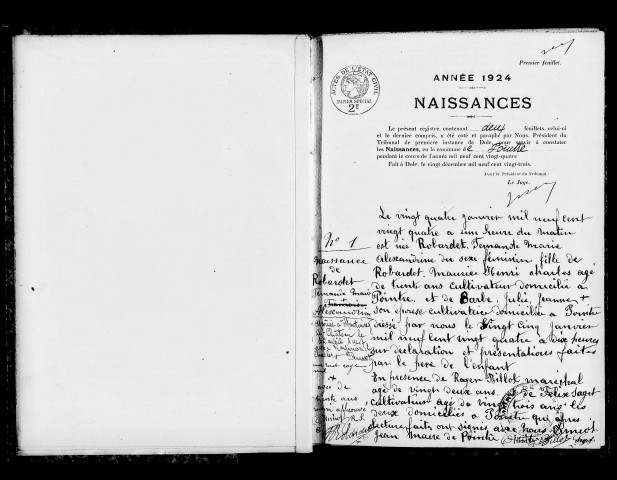 Premier feuillet.
ACTES DE L'ÉTAT CIVIL
PAPIER SPÉCIAL
2F
ANNÉE 1924
NAISSANCES
Le présent registre, contenant deux feuillets, celui-ci
et le dernier compris, a été coté et paraphé par Nous, Président du
Tribunal de première instance de Dole, pour servir à constater
les Naissances, sur la commune de Pointre
pendant le cours de l'année mil neuf cent vingt-quatre
Fait à Dole, le vingt décembre mil neuf cent vingt-trois.
Pour le Président du Tribunal :
Le Juge,
No 1
Naissance
de
Robardet
Fernande Marie
Alexandrine
Le vingt quatre janvier mil neuf cent
vingt quatre a une heure du matin
est née Robardet, Fernande Marie
Alexandrine du sexe féminin fille de
Robardet, Maurice Henri Charles agé
de trente ans cultivateur domicilié a
Pointre, et de Barbe, Julie, Jeanne +
son épouse cultivateur domiciliée a Pointre
dressé par nous le Vingt Cinq Janvier
mil neuf cent vingt quatre a deux heures
sur déclaration et présentations faites
par le père de l'enfant
En presence de Roger Billot maréchal
agé de vingt deux ans, de Felix Saget
cultivateur agé de vingt trois ans les
deux domiciliés a Pointre qui après
lecture faite ont signés avec nous
Jean Maire de Pointre
+
agée de
trente ans